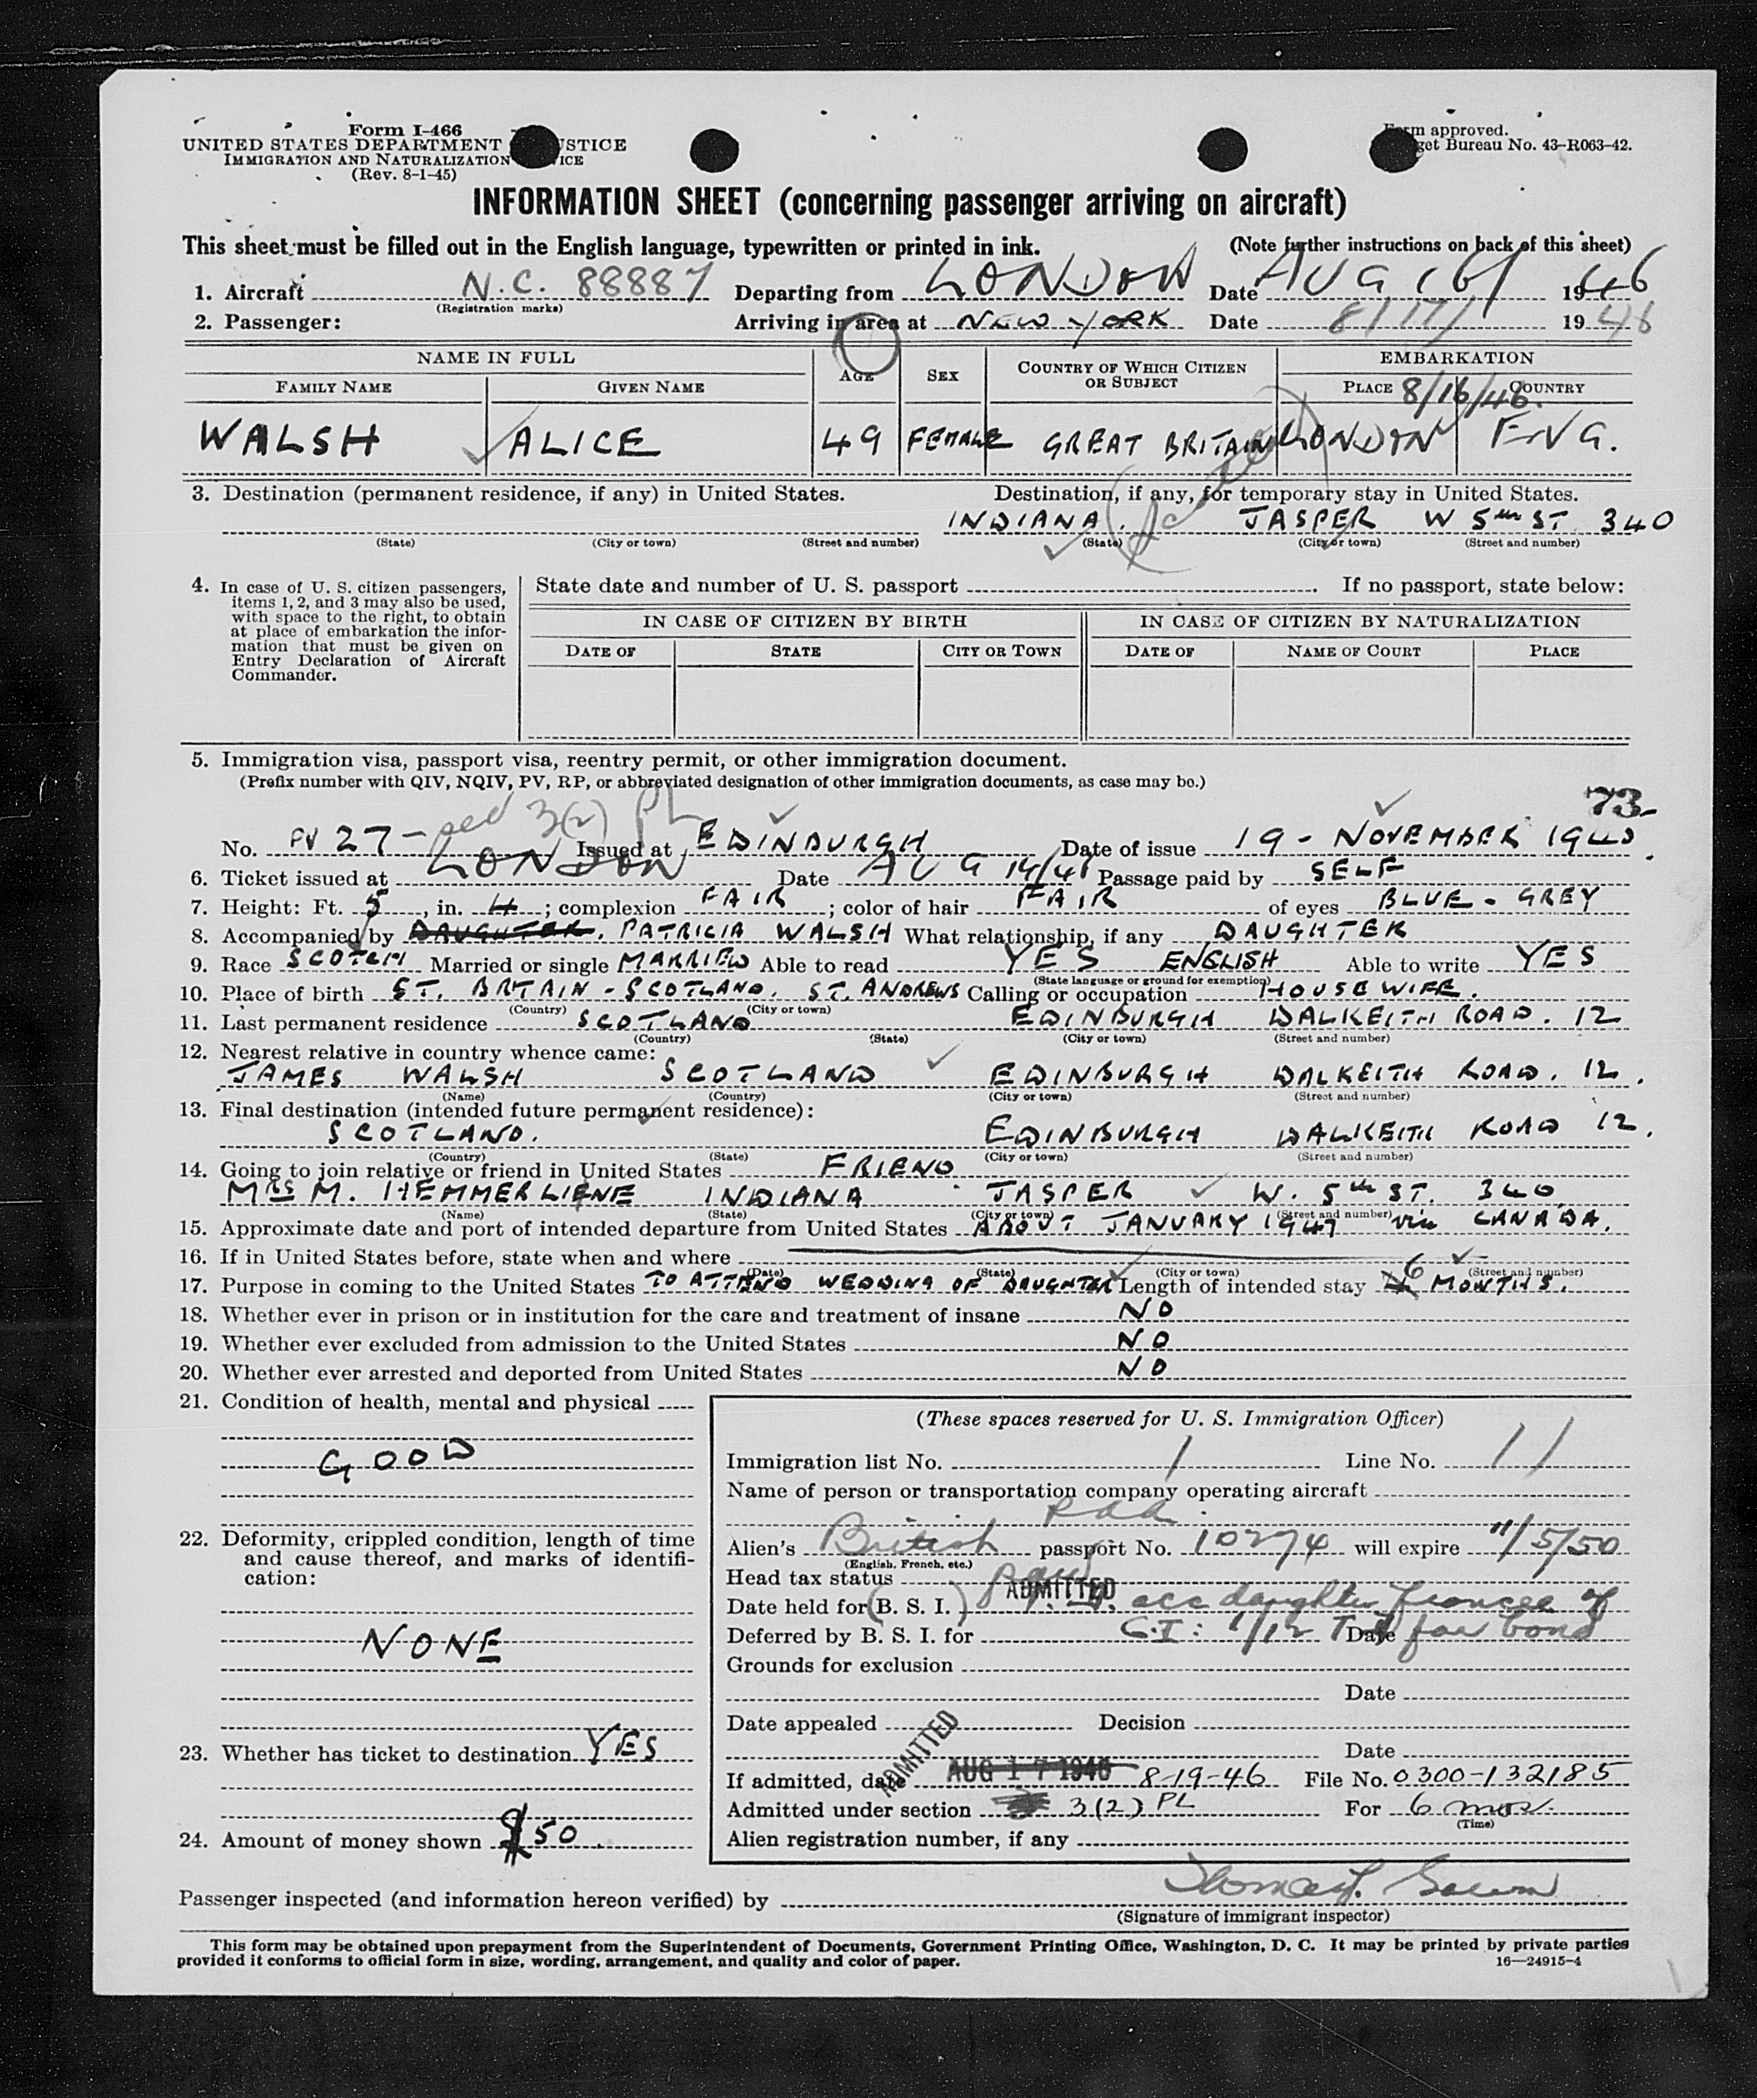 Form I-466
UNITED STATES DEPARTMENT JUSTICE
IMMIGRATION AND NATURALIZATION SERVICE
(Rev. 8-1-45)
Form approved.
Budget Bureau No. 43-R063-42.
INFORMATION SHEET (concerning passenger arriving on aircraft)
This sheet must be filled out in the English language, typewritten or printed in ink. (Note further instructions on back of this sheet)
1. Aircraft N.C. 88887 Departing from LONDON Date AUG 16/ 1946
(Registration marks)
2. Passenger: Arriving in area at NEW YORK Date 8/17/ 1946
NAME IN FULL AGE SEX COUNTRY OF WHICH CITIZEN OR SUBJECT EMBARKATION
FAMILY NAME GIVEN NAME PLACE 8/16/46. COUNTRY
WALSH ALICE 49 FEMALE GREAT BRITAIN LONDON ENG.
3. Destination (permanent residence, if any) in United States. Destination, if any, for temporary stay in United States.
INDIANA. JASPER W 5th ST. 340
(State) (City or town) (Street and number) (State) (City or town) (Street and number)
4. In case of U. S. citizen passengers, items 1, 2, and 3 may also be used, with space to the right, to obtain at place of embarkation the information that must be given on Entry Declaration of Aircraft Commander.
State date and number of U. S. passport . If no passport, state below:
IN CASE OF CITIZEN BY BIRTH IN CASE OF CITIZEN BY NATURALIZATION
DATE OF STATE CITY OR TOWN DATE OF NAME OF COURT PLACE
5. Immigration visa, passport visa, reentry permit, or other immigration document.
(Prefix number with QIV, NQIV, PV, RP, or abbreviated designation of other immigration documents, as case may be.)
73
3(2) PL
No. PV 27 Issued at EDINBURGH Date of issue 19 - NOVEMBER 1940.
6. Ticket issued at LONDON Date AUG 14/46 Passage paid by SELF
7. Height: Ft. 5, in. 4; complexion FAIR; color of hair FAIR of eyes BLUE - GREY
8. Accompanied by DAUGHTER. PATRICIA WALSH What relationship, if any DAUGHTER
9. Race SCOTCH Married or single MARRIED Able to read YES ENGLISH Able to write YES
(State language or ground for exemption)
10. Place of birth GT. BRTAIN - SCOTLAND. ST. ANDREWS Calling or occupation HOUSEWIFE.
(Country) (City or town)
11. Last permanent residence SCOTLAND EDINBURGH DALKEITH ROAD. 12
(Country) (State) (City or town) (Street and number)
12. Nearest relative in country whence came:
JAMES WALSH SCOTLAND EDINBURGH DALKEITH ROAD. 12.
(Name) (Country) (City or town) (Street and number)
13. Final destination (intended future permanent residence):
SCOTLAND. EDINBURGH DALKEITH ROAD 12.
(Country) (State) (City or town) (Street and number)
14. Going to join relative or friend in United States FRIEND
MRS M. HEMMERLIENE INDIANA JASPER W. 5th ST. 340
(Name) (State) (City or town) (Street and number)
15. Approximate date and port of intended departure from United States ABOUT JANUARY 1947 via CANADA.
16. If in United States before, state when and where
(Date) (State) (City or town) (Street and number)
17. Purpose in coming to the United States TO ATTEND WEDDING OF DAUGHTER Length of intended stay 6 MONTHS.
18. Whether ever in prison or in institution for the care and treatment of insane NO
19. Whether ever excluded from admission to the United States NO
20. Whether ever arrested and deported from United States NO
21. Condition of health, mental and physical
GOOD
22. Deformity, crippled condition, length of time and cause thereof, and marks of identification:
NONE
23. Whether has ticket to destination YES
24. Amount of money shown $50.
(These spaces reserved for U. S. Immigration Officer)
Immigration list No. 1 Line No. 11
Name of person or transportation company operating aircraft
PAA
Alien's British passport No. 10274 will expire 11/5/50
(English, French, etc.)
Head tax status
ADMITTED
Date held for (B. S. I.) acc daughter fiancee of
Deferred by B. S. I. for G.I: Date for bond
Grounds for exclusion
Date
Date appealed Decision
ADMITTED
Date
If admitted, date AUG 17 1946 8-19-46 File No. 0300-132185
Admitted under section 3(2) PL For 6 mos.
(Time)
Alien registration number, if any
Passenger inspected (and information hereon verified) by
(Signature of immigrant inspector)
This form may be obtained upon prepayment from the Superintendent of Documents, Government Printing Office, Washington, D. C. It may be printed by private parties
provided it conforms to official form in size, wording, arrangement, and quality and color of paper. 16—24915-4